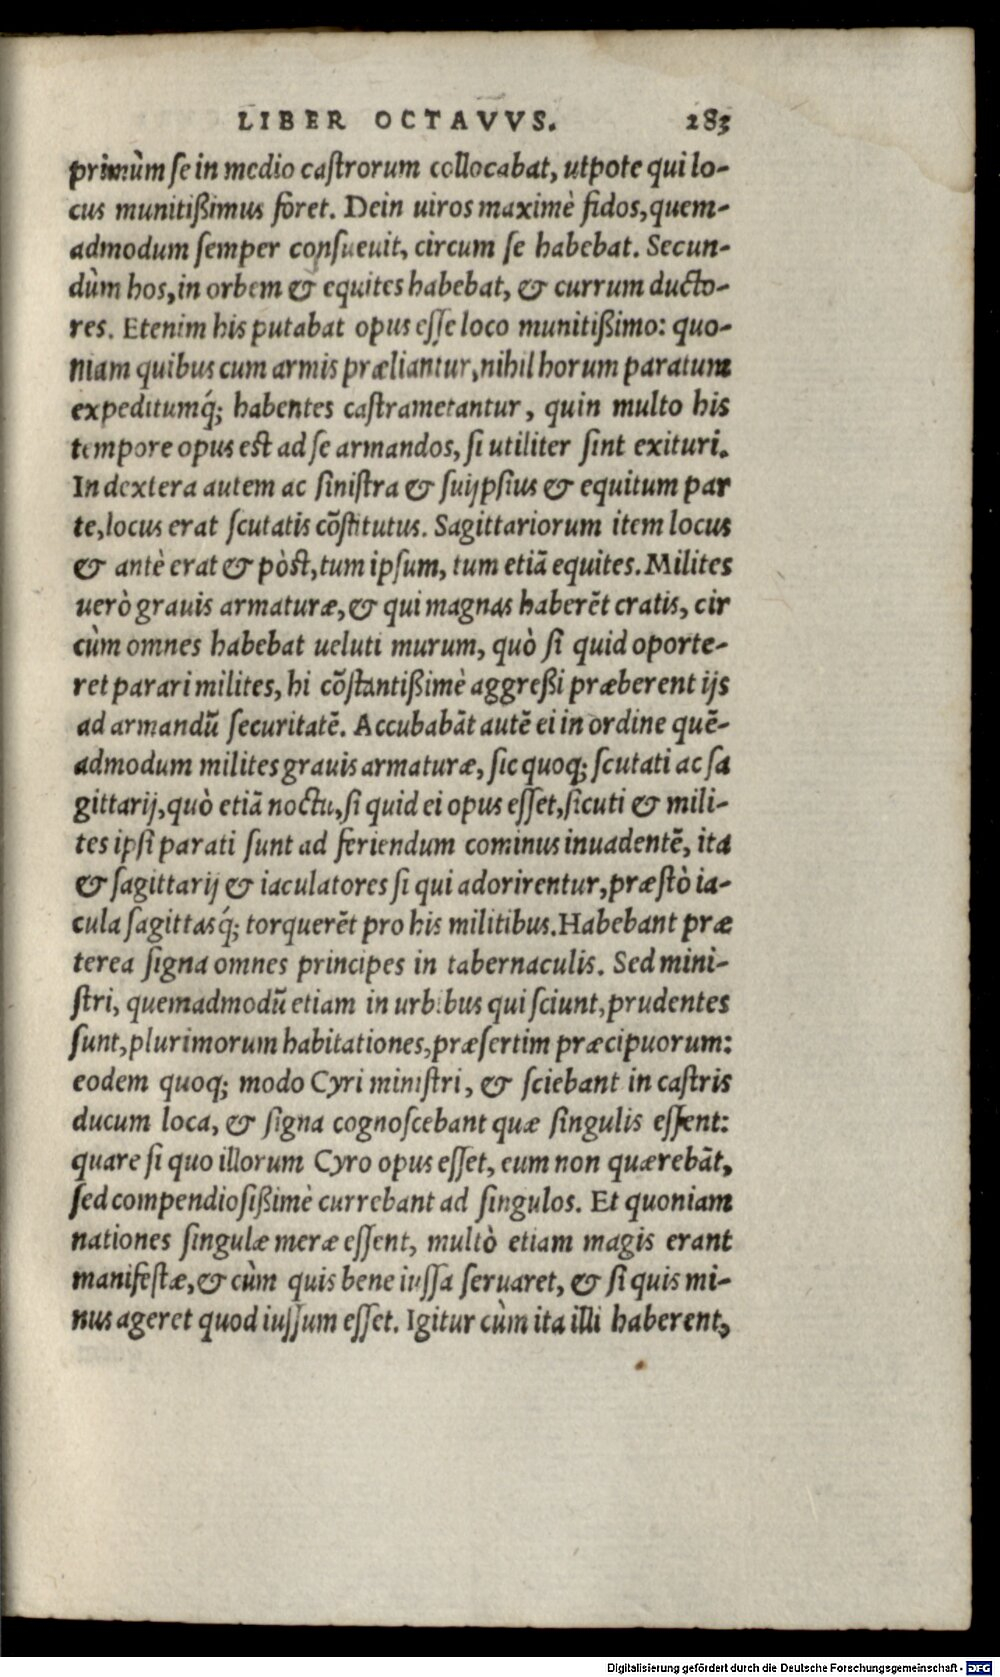 LIBER OCTAVVS. 283
primùm ſe in medio caſtrorum collocabat, utpote qui lo-
cus munitißimus foret. Dein uiros maximè fidos, quem-
admodum ſemper conſueuit, circum ſe habebat. Secun-
dùm hos, in orbem & equites habebat, & currum ducto-
res. Etenim his putabat opus eſſe loco munitißimo: quo-
niam quibus cum armis præliantur, nihil horum paratum
expeditumq́; habentes caſtrametantur, quin multo his
tempore opus est ad ſe armandos, ſi utiliter ſint exituri.
In dextera autem ac ſiniſtra & ſuijpſius & equitum par
te, locus erat ſcutatis cõſtitutus. Sagittariorum item locus
& antè erat & pòst, tum ipſum, tum etiã equites. Milites
uerò grauis armaturæ, & qui magnas haberẽt cratis, cir
cùm omnes habebat ueluti murum, quò ſi quid oporte-
ret parari milites, hi cõſtantißimè aggreßi præberent ijs
ad armandũ ſecuritatẽ. Accubabãt autẽ ei in ordine quẽ-
admodum milites grauis armaturæ, ſic quoq; ſcutati ac ſa
gittarij, quò etiã noctu, ſi quid ei opus eſſet, ſicuti & mili-
tes ipſi parati ſunt ad feriendum cominus inuadentẽ, ita
& ſagittarij & iaculatores ſi qui adorirentur, præſtò ia-
cula ſagittasq́; torquerẽt pro his militibus. Habebant præ
terea ſigna omnes principes in tabernaculis. Sed mini-
ſtri, quemadmodũ etiam in urbibus qui ſciunt, prudentes
ſunt, plurimorum habitationes, præſertim præcipuorum:
eodem quoq; modo Cyri miniſtri, & ſciebant in caſtris
ducum loca, & ſigna cognoſcebant quæ ſingulis eſſent:
quare ſi quo illorum Cyro opus eſſet, eum non quærebãt,
ſed compendioſißimè currebant ad ſingulos. Et quoniam
nationes ſingulæ meræ eſſent, multò etiam magis erant
manifeſtæ, & cùm quis bene iuſſa ſeruaret, & ſi quis mi-
nus ageret quod iuſſum eſſet. Igitur cùm ita illi haberent,
Digitalisierung gefördert durch die Deutsche Forschungsgemeinschaft - DFG